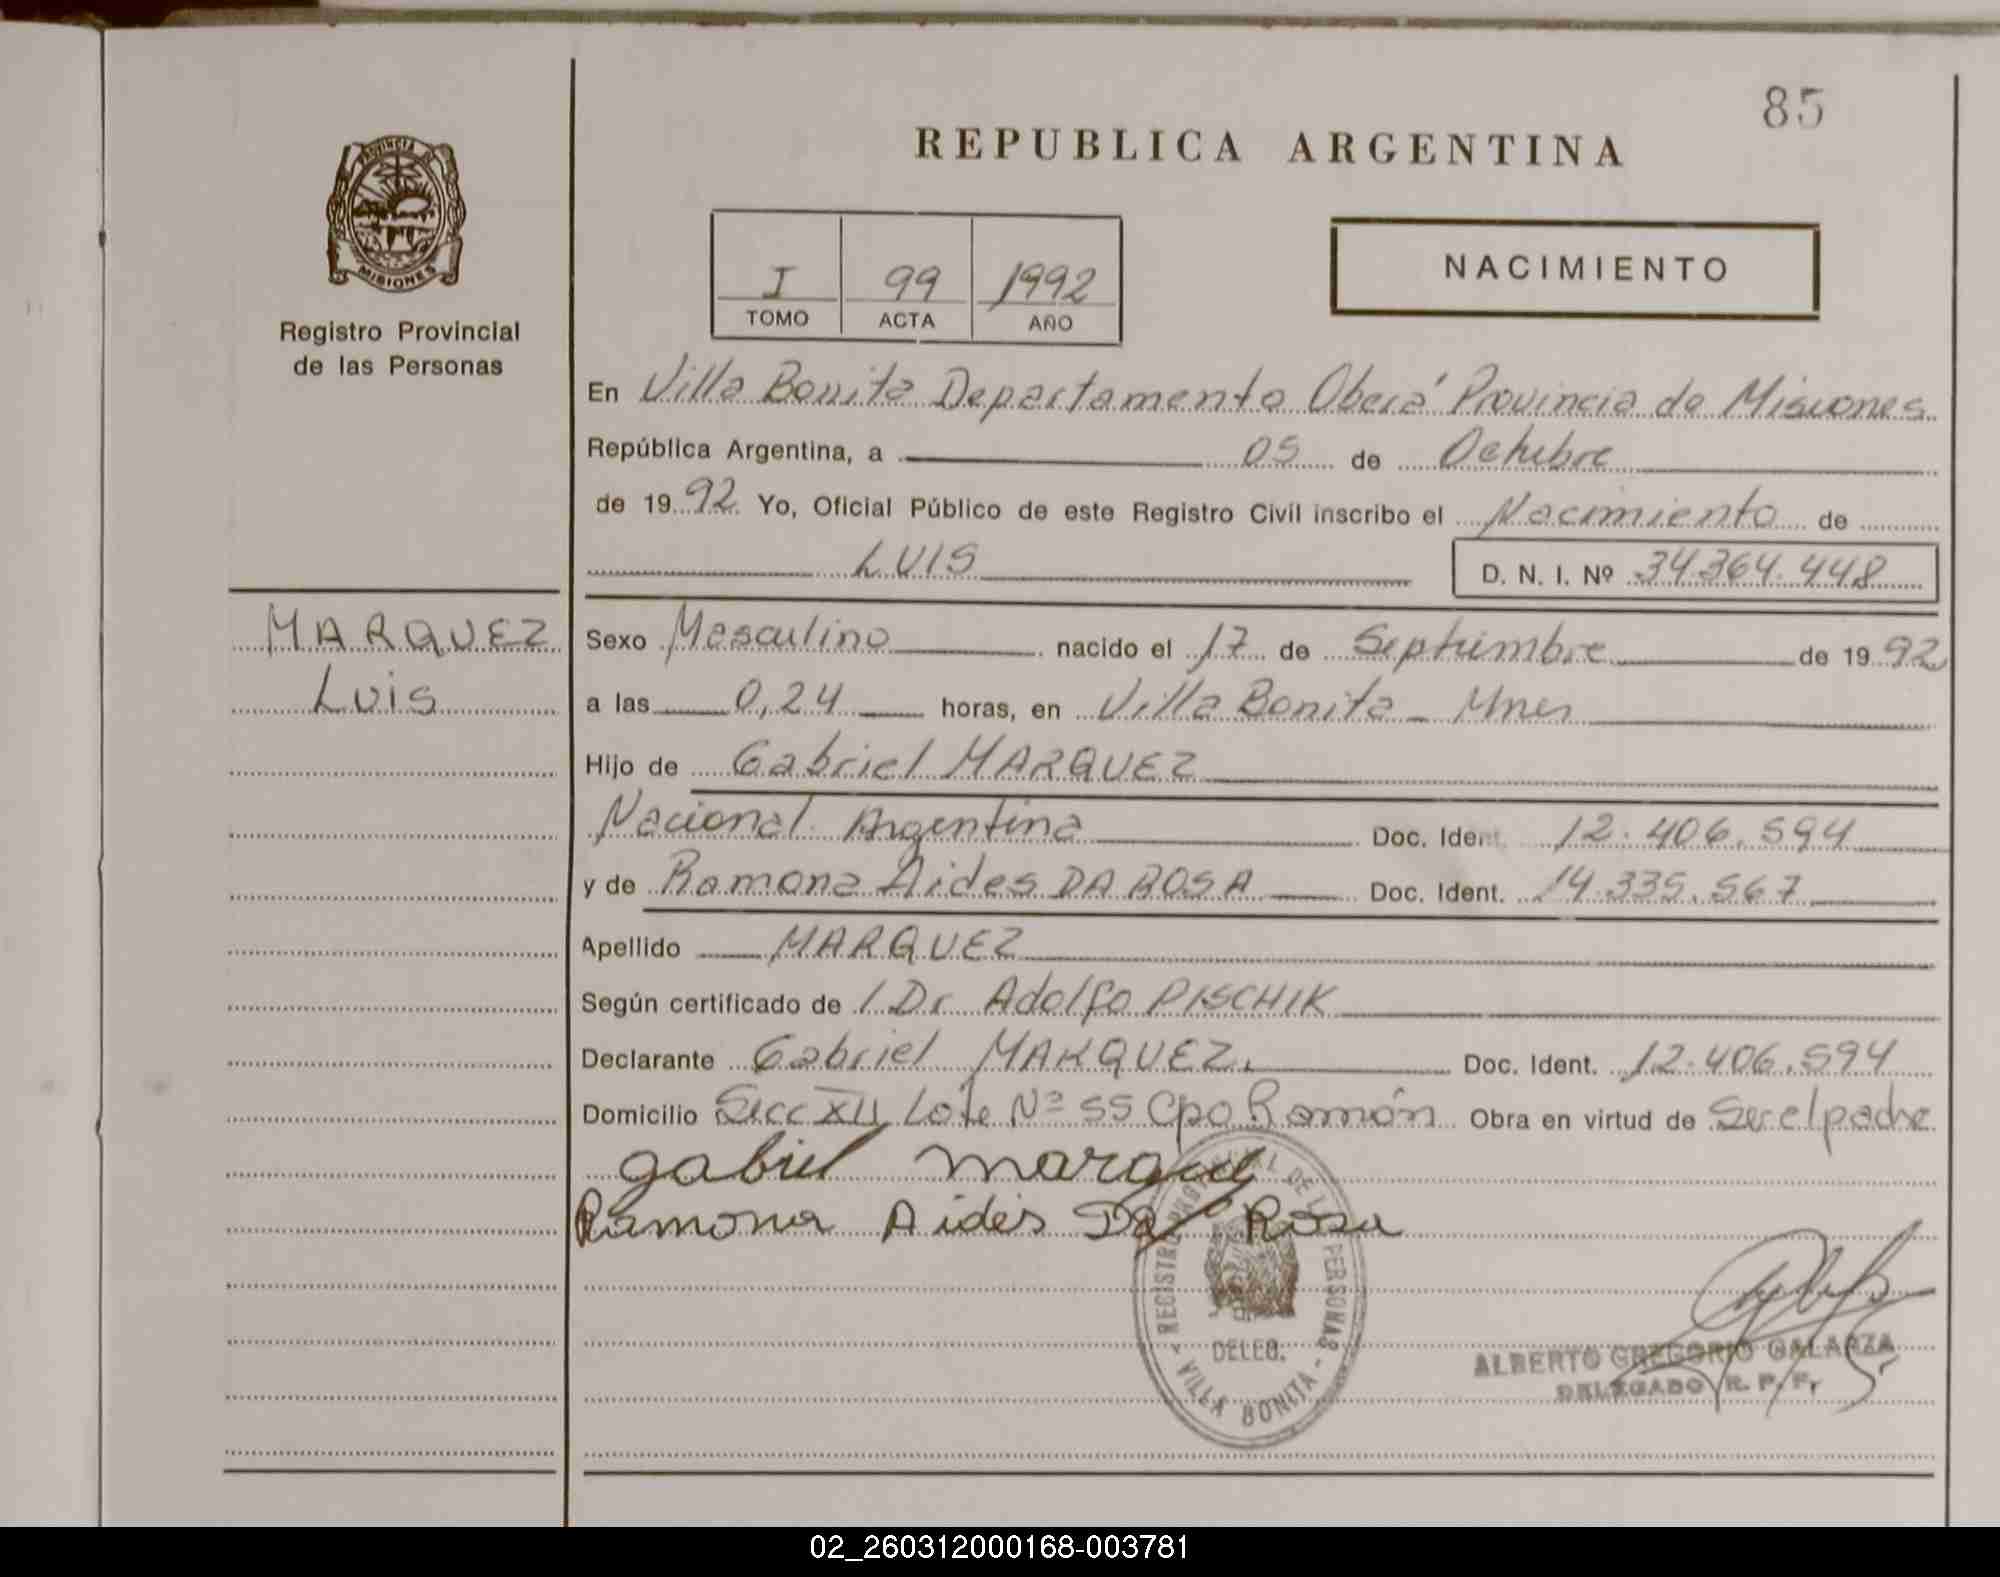 85
REPUBLICA ARGENTINA
PROVINCIA DE
MISIONES
Registro Provincial
de las Personas
I 99 1992
TOMO ACTA AÑO
NACIMIENTO
En Villa Bonita Departamento Oberá Provincia de Misiones
República Argentina, a 05 de Octubre
de 1992 Yo, Oficial Público de este Registro Civil inscribo el Nacimiento de
LUIS D. N. I. Nº 34.364.448
MARQUEZ
Luis
Sexo Masculino nacido el 17 de Septiembre de 1992
a las 0,24 horas, en Villa Bonita - Mnes
Hijo de Gabriel MARQUEZ
Nacional. Argentina Doc. Ident. 12.406.594
y de Ramona Aides DA ROSA Doc. Ident. 14.335.567
Apellido MARQUEZ
Según certificado de / Dr. Adolfo PISCHIK
Declarante Gabriel MARQUEZ. Doc. Ident. 12.406.594
Domicilio Secc XII Lote Nº 55 Cpo Ramón Obra en virtud de Ser el padre
gabriel marquez
Ramona Aides Da Rosa
REGISTRO PROVINCIAL DE LAS PERSONAS
DELEG.
- VILLA BONITA -
ALBERTO GREGORIO GALARZA
DELEGADO R. P. P.
02_260312000168-003781